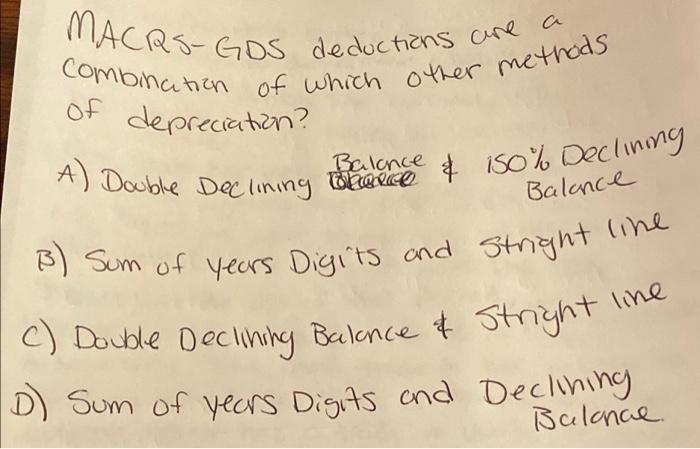 MACRS-GDS deductions are a
combination of which other methods
of depreciation?
A) Double Declining Balance & 150% Declining
Balance
B) Sum of years Digits and Stright line
C) Double Declining Balance & Stright line
D) Sum of years Digits and Declining
Balance.